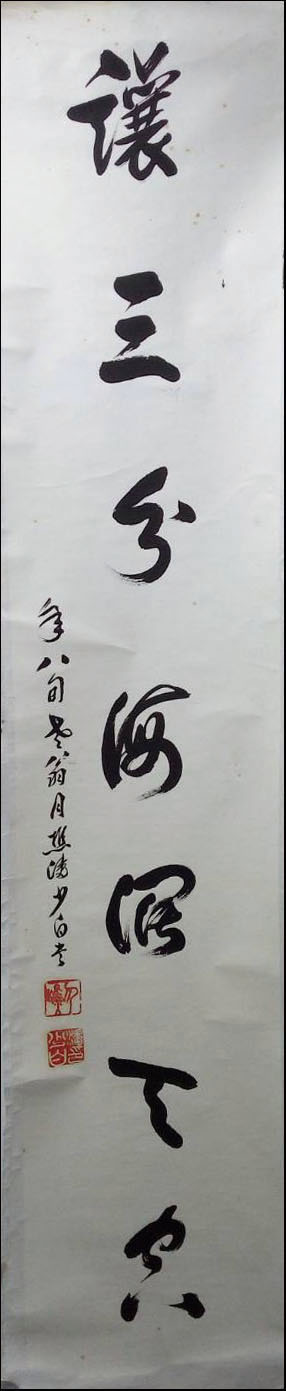 讓三分海闊天空
年八旬老翁月樵潘少白書